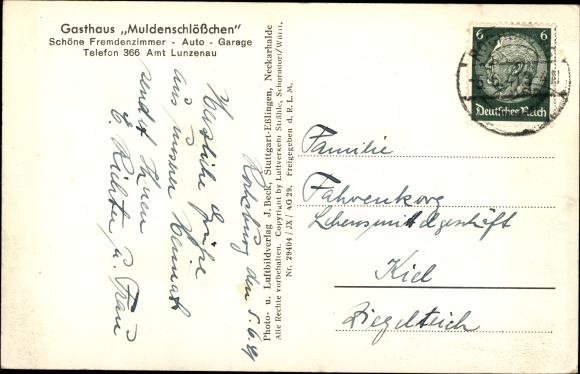 Gasthaus „Muldenschlößchen"
Schöne Fremdenzimmer - Auto - Garage
Telefon 366 Amt Lunzenau
Rochsburg den 5.6.41
Herzliche Grüße
aus unserer Heimat
sendet Ihnen
E. Richter u. Frau
Photo- u. Luftbildverlag J. Beck, Stuttgart-Eßlingen, Neckarhalde
Alle Rechte vorbehalten. Copyright by Luftverkehr Strähle, Schorndorf/Württ.
Nr. 29404/JX/AG 29. Freigegeben d. R. L. M.
6 6
Deutsches Reich
Familie
Fahrenkrog
Lebensmittelgeschäft
Kiel
Ziegelteich